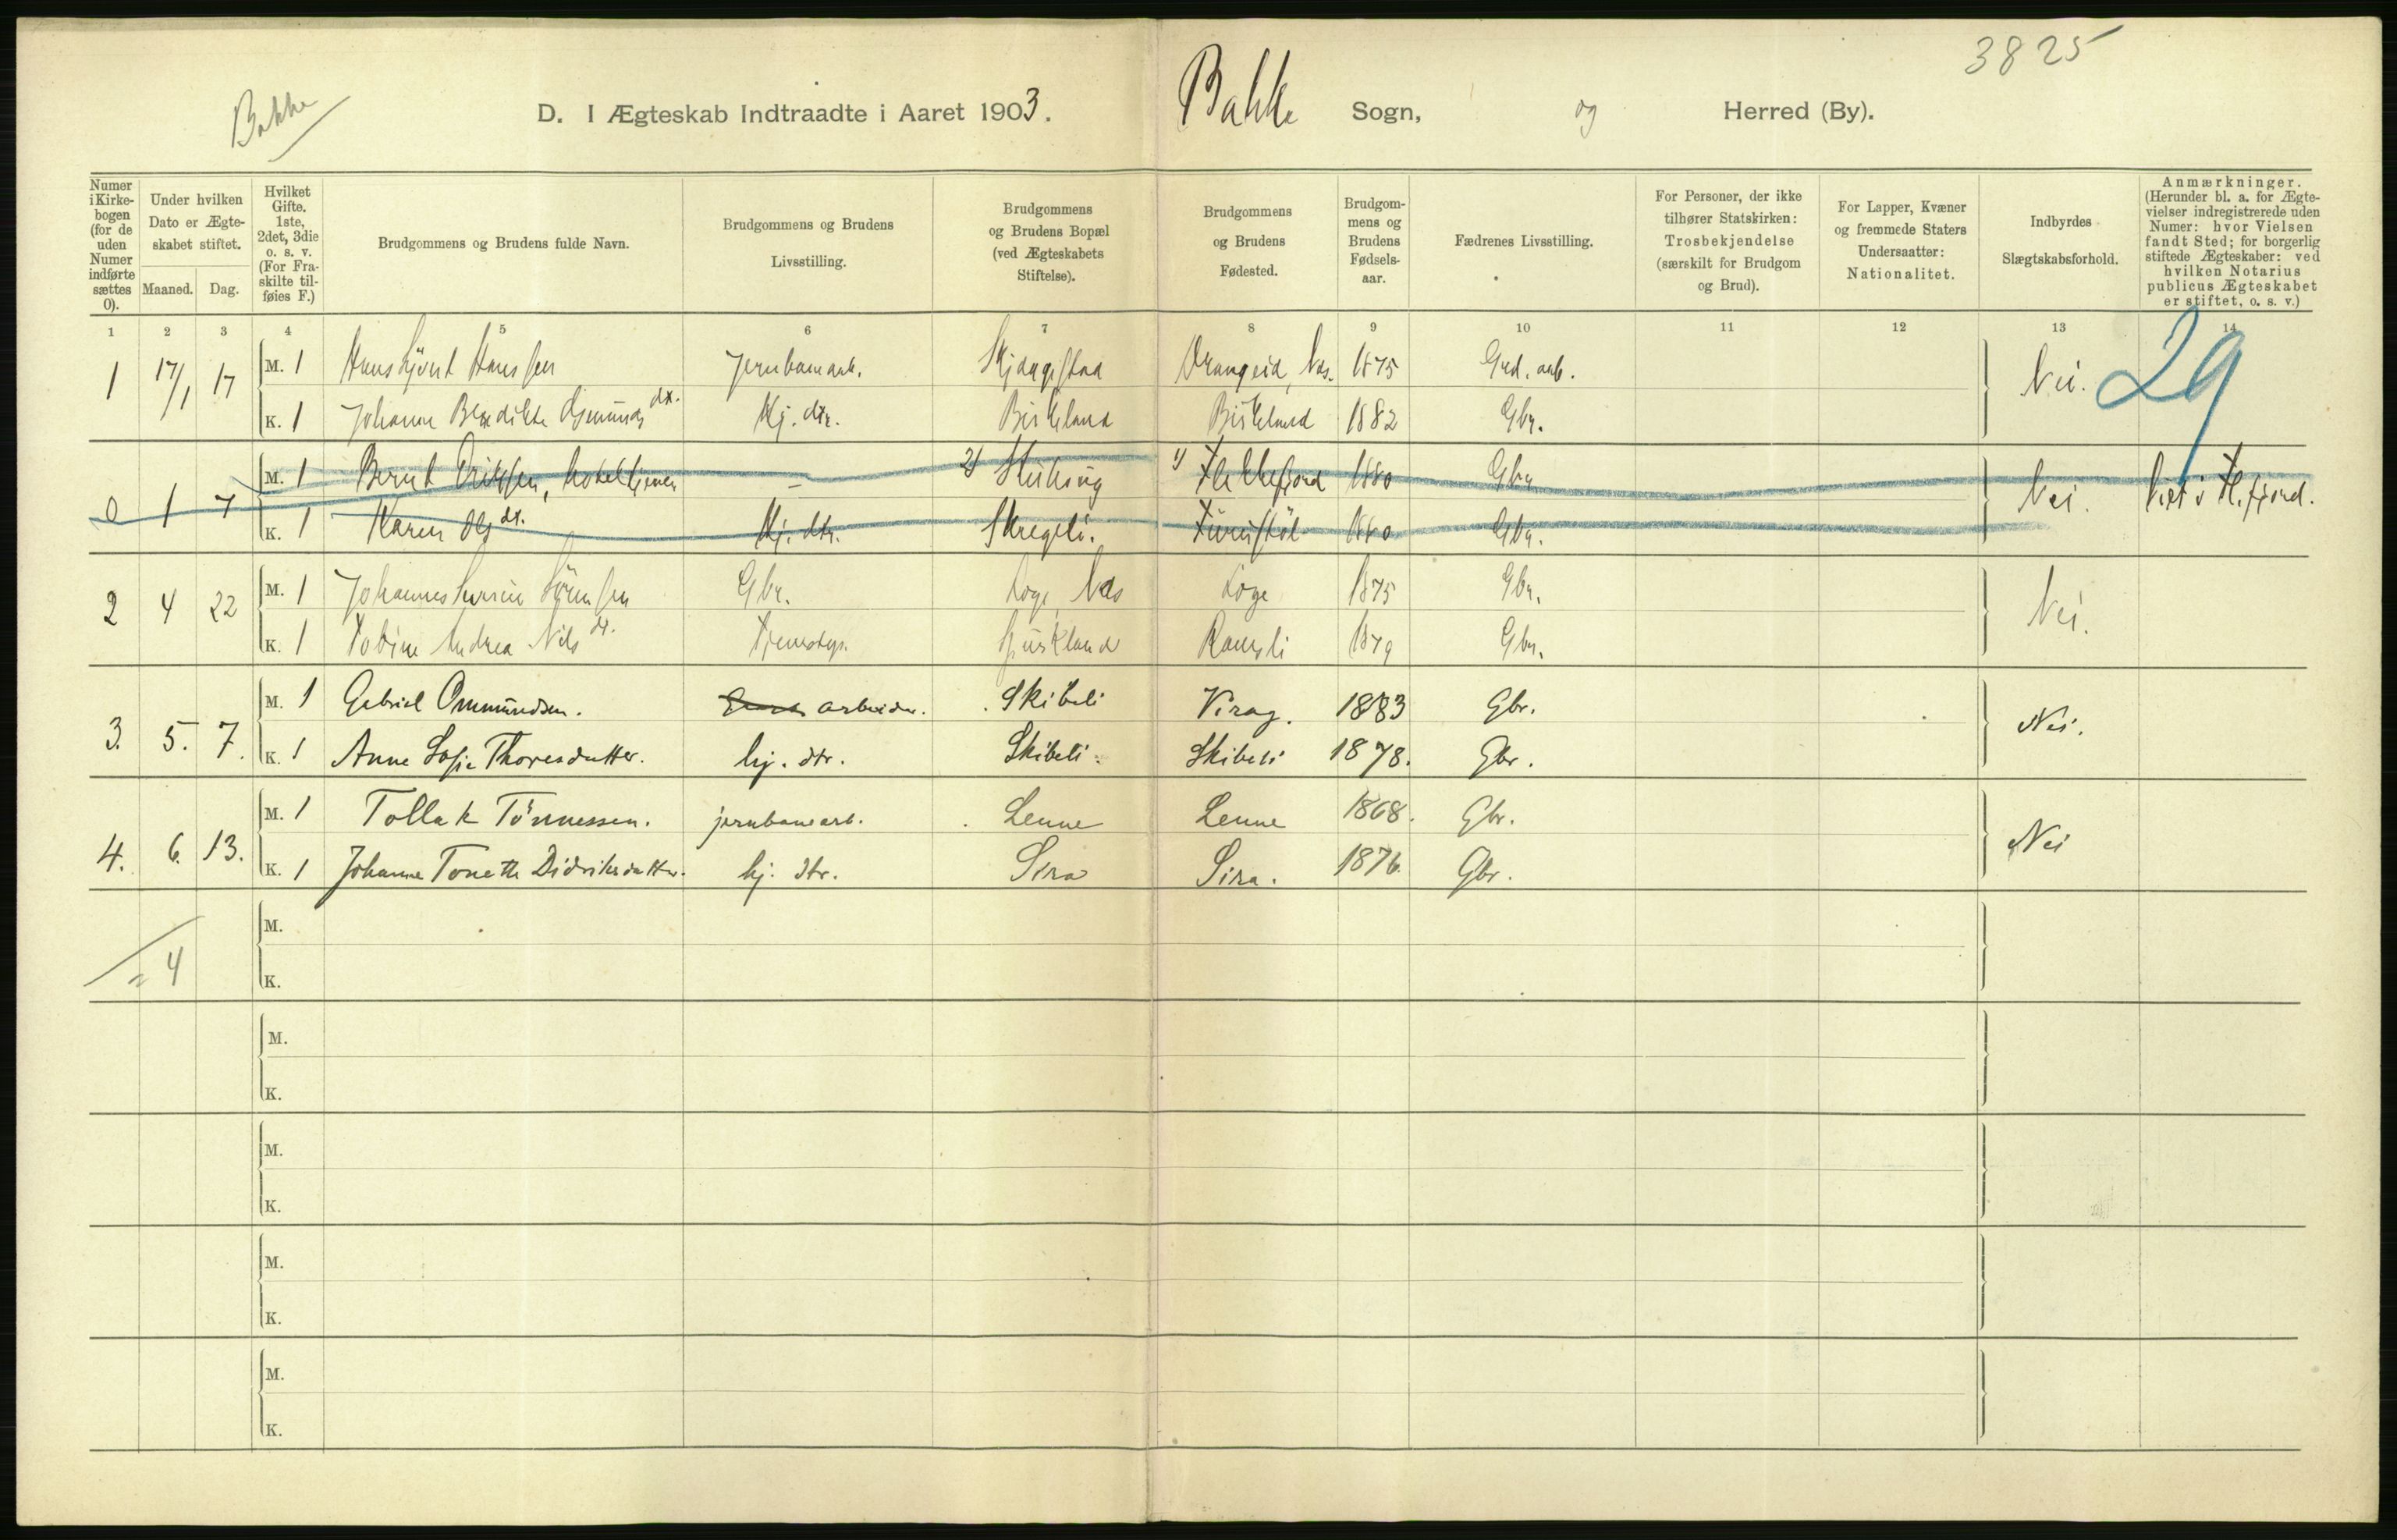 3825
Bakke
D. I Ægteskab Indtraadte i Aaret 1903. Bakke Sogn, og Herred (By).
Numer i Kirke-bogen (for de uden Numer indførte sættes 0).
Under hvilken Dato er Ægte-skabet stiftet.
Maaned. Dag.
Hvilket Gifte. 1ste, 2det, 3die o. s. v. (For Fra-skilte til-føies F.)
Brudgommens og Brudens fulde Navn.
Brudgommens og Brudens Livsstilling.
Brudgommens og Brudens Bopæl (ved Ægteskabets Stiftelse).
Brudgommens og Brudens Fødested.
Brudgom-mens og Brudens Fødsels-aar.
Fædrenes Livsstilling.
For Personer, der ikke tilhører Statskirken: Trosbekjendelse (særskilt for Brudgom og Brud).
For Lapper, Kvæner og fremmede Staters Undersaatter: Nationalitet.
Indbyrdes Slægtskabsforhold.
Anmærkninger. (Herunder bl. a. for Ægte-vielser indregistrerede uden Numer: hvor Vielsen fandt Sted; for borgerlig stiftede Ægteskaber: ved hvilken Notarius publicus Ægteskabet er stiftet, o. s. v.)
1 2 3 4 5 6 7 8 9 10 11 12 13 14
29
1 17/1 17 M. 1 Hans Hanssen Jernbanearb. 1875 Grd. arb. Nei.
K. 1 Johanne Benedikte dt. Hj. dtr. Birkeland Birkeland 1882 Gbr.
0 1 7 M. 1 Bernt Eriksen, - 2) 1) Flekkefjord 1880 Gbr. Nei. Viet i Fl.fjord.
K. 1 Karen Ols dt. Hj. dtr. Skregeli. 1880 Gbr.
2 4 22 M. 1 Johannes Gbr. Loge, Nes Loge 1875 Gbr. Nei.
K. 1 Tobine Andrea Nils dt. Ramsli 1879 Gbr.
3. 5. 7. M. 1 Gabriel Ommundsen. arbeider. Skibeli Virag. 1883 Gbr. Nei.
K. 1 Anne Sofie Thoresdatter. hj. dtr. Skibeli. Skibeli 1878. Gbr.
4. 6. 13. M. 1 Tollak Tönnessen. jernbanearb. Lenne Lenne 1868. Gbr. Nei
K. 1 Johanne Tonette Didriksdatter. hj. dtr. Sira Sira. 1876. Gbr.
M.
= 4
K.
M.
K.
M.
K.
M.
K.
M.
K.